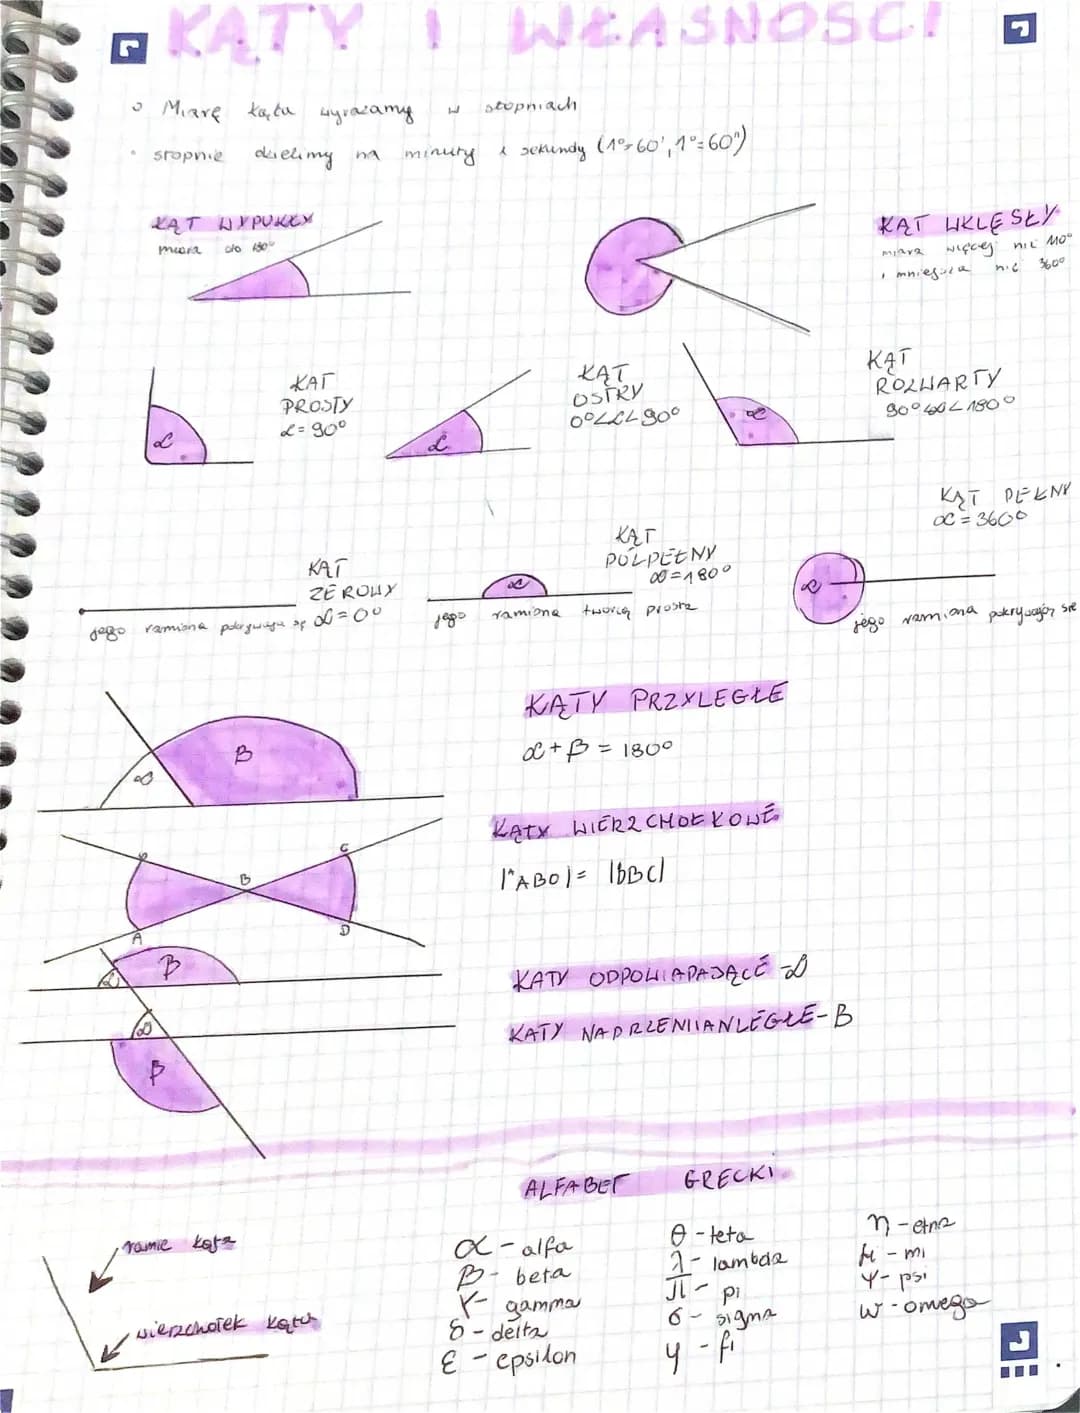 KĄTY I WŁASNOŚCI
Miarę kąta wyrażamy w stopniach
stopnie dzielimy na minuty i sekundy (1°=60', 1°=60")
KĄT WYPUKŁY
miara do 180°
KĄT WKLĘSŁY
miara więcej niż 180°
i mniejsza niż 360°
α
KĄT
PROSTY
α = 90°
α
KĄT
OSTRY
0°<α<90°
α
KĄT
ROZWARTY
90°<α<180°
KĄT
ZEROWY
α = 0°
jego ramiona pokrywają się
α
KĄT
PÓŁPEŁNY
α = 180°
jego ramiona tworzą prostą
KĄT PEŁNY
α = 360°
α
jego ramiona pokrywają się
α
B
KĄTY PRZYLEGŁE
α + β = 180°
B
C
A
D
KĄTY WIERZCHOŁKOWE
β
α
α
β
KATY ODPOWIADAJĄCE - α
KATY NAPRZEMIANLEGŁE - B
ALFABET GRECKI
ramię kąta
wierzchołek kąta
α - alfa
β - beta
γ - gamma
δ - delta
ε - epsilon
θ - teta
λ - lambda
π - pi
σ - sigma
φ - fi
η - etna
μ - mi
ψ - psi
ω - omega